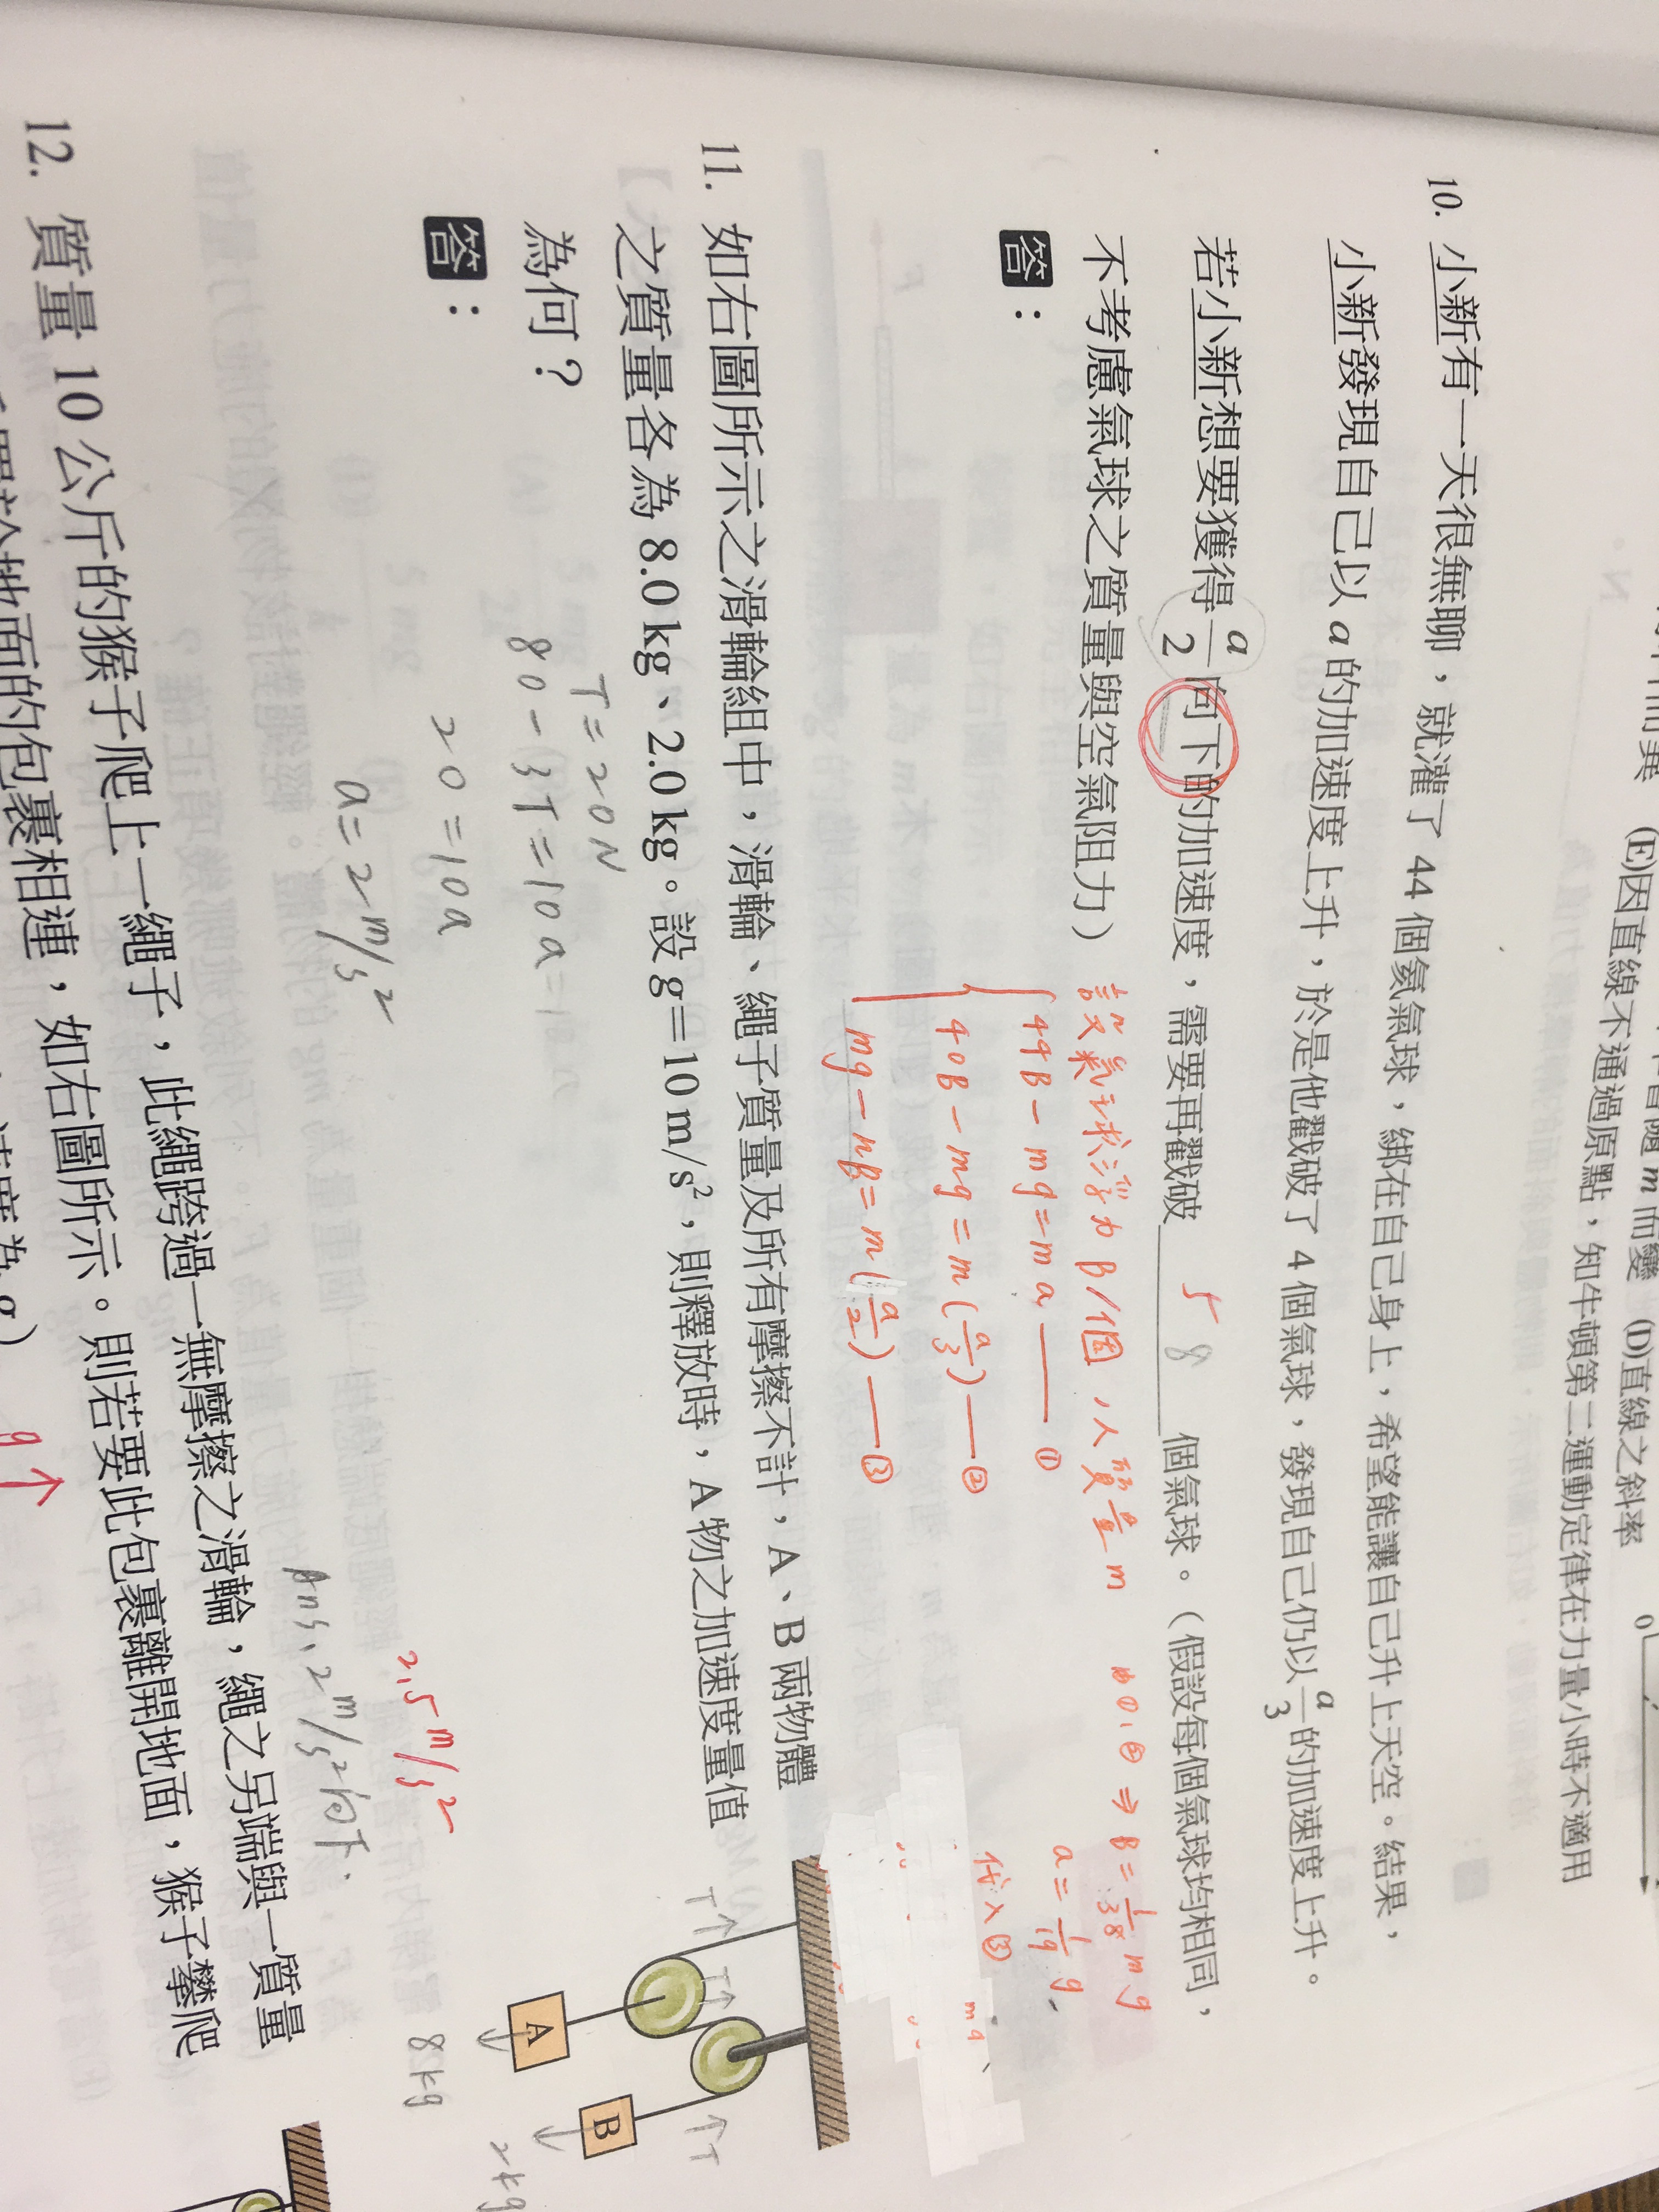 (E)因直線不通過原點，知牛頓第二運動定律在力量小時不適用
而變 (D)直線之斜率
0
10. 小新有一天很無聊，就灌了 44 個氦氣球，綁在自己身上，希望能讓自己升上天空。結果，
小新發現自己以 a 的加速度上升，於是他戳破了 4 個氣球，發現自己仍以 a/3 的加速度上升。
若小新想要獲得 a/2 向下的加速度，需要再戳破 5 8 個氣球。（假設每個氣球均相同，
不考慮氣球之質量與空氣阻力）
答：
設氣球浮力 B/個，人質量 m
44B - mg = ma ①
40B - mg = m(a/3) ②
mg - nB = m(a/2) ③
①,② ⇒ B = 1/38 mg
a = 1/19 g,
代入③
11. 如右圖所示之滑輪組中，滑輪、繩子質量及所有摩擦不計，A、B 兩物體
之質量各為 8.0 kg、2.0 kg。設 g＝10 m/s²，則釋放時，A 物之加速度量值
為何？
答：
T = 20N
80 - 3T = 10a
20 = 10a
a = 2 m/s²
2.5 m/s²
Ans, 2 m/s² 向下.
T
T
T
A
B
8kg
2kg
12. 質量 10 公斤的猴子爬上一繩子，此繩跨過一無摩擦之滑輪，繩之另端與一質量
的包裹相連，如右圖所示。則若要此包裹離開地面，猴子攀爬